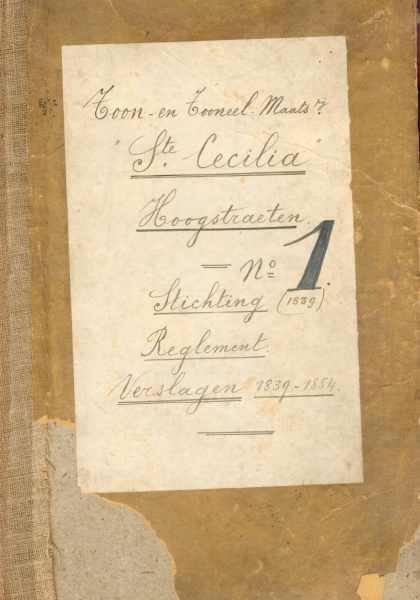 Toon - en Tooneel - Maatsij
"Ste Cecilia"
Hoogstraeten.
No 1.
Stichting (1839)
Reglement.
Verslagen 1839-1854.